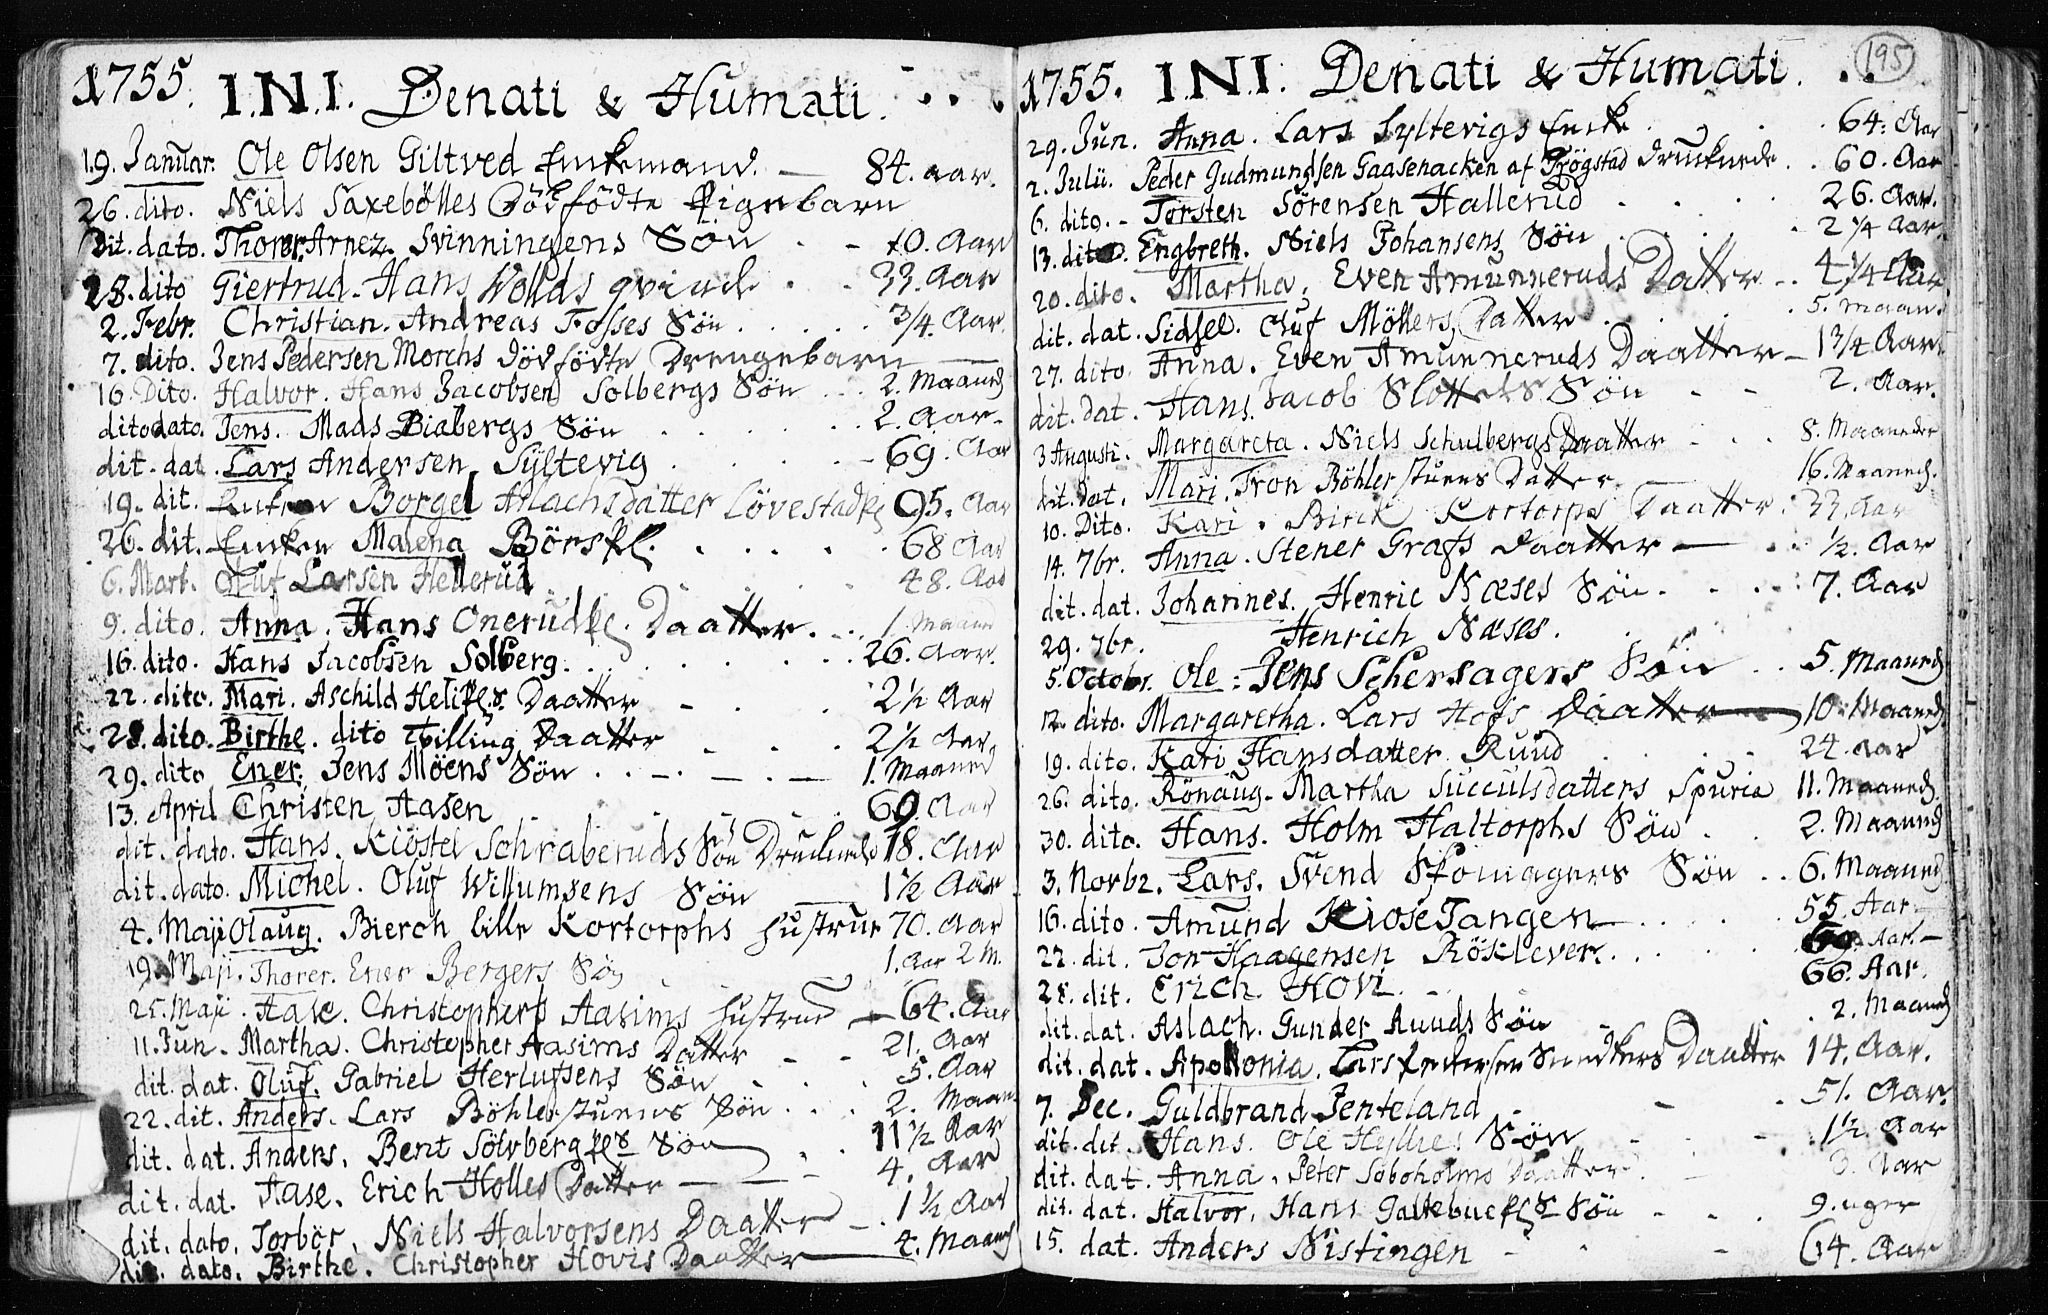 1755. I.N.I. Denati & Humati
19. Januar. Ole Olsen Giltved Enkemand. 84. aar.
26. dito. Niels Saxebölles Dödfödte Pigebarn
Dit. dato. Thorer. Arnez. Svinningens Sön 10. Aar
28. dito Giertrud. Hans Wollds qvinde 33. Aar
2. Febr. Christian. Andreas Fosses Sön 3/4. Aar.
7. dito. Jens Pedersen Morchs Dödfödte Drengebarn
16. Dito. Halvor. Hans Jacobsen Solbergs Sön 2. Maaned
dito dato. Jens. Mads Biabergs Sön 2. Aar
dit. dat. Lars Andersen Syltevig 69. Aar
19. dit. Enken Borgel Aslachsdatter Lövestad 95. Aar
26. dit. Enken Malena Börs 68 Aar
6. Mart. Oluf Larsen Hellerud 48. Aar
9. dito. Anna. Hans Onerud Daatter. 1. Maaned
16. dito. Hans Jacobsen Solberg. 26. Aar.
22. dito. Mari. Aschild Daatter 2 1/2 Aar
28. dito. Birthe. dito Tvilling Daatter 2 1/2 Aar
29. dito Ener. Jens Möens Sön 1. Maaned
13. April Christen Aasen 60. Aar
dit. dato. Hans. Kiöstel Schraberuds Sön Druknede 18. Aar
dit. dato. Michel. Oluf Willumsens Sön 1 1/2 Aar
4. Maji Olaug. Bierch lille Kortorphs Hustrue 70. Aar
19. Maji. Thorer. Ener Bergers Sön 1. Aar 2 M.
25. Maji. Aase. Christophers Aasims Hustrue 64. Aar
11. Jun. Martha. Christopher Aasims Datter 21. Aar
dit. dat. Oluf. Gabriel Herlufsens Sön 5. Aar
22. dit. Anders. Lars Böhlerstuens Sön 2. Maan
dit. dat. Anders. Bent Sölvberg Sön 11 1/2 Aar
dit. dat. Aase. Erich Holles Datter 4. Aar
dit. dato. Torbör. Niels Halvorsens Daatter 1 1/2 Aar
dit. dato. Birthe. Christopher Hovis Daatter 4. Maaned
195
1755. I.N.I. Denati & Humati.
29. Jun. Anna. Lars Syltevigs Enke 64. Aar
2. Julii. Peder Gudmundssen Gaasenacken af Trögstad Druknede 60. Aar
6. dito. Torsten Sörensen Hallerud 26. Aar.
13. dito. Engbreth. Niels Johansens Sön 2 1/4 Aar.
20. dito. Martha. Even Amunneruds Datter 4 1/4 Aar
dit. dat. Sidsel. Oluf Möllers Datter 5. Maan.
27. dito. Anna. Even Amunneruds Daatter 1 3/4 Aar.
dit. dat. Hans. Jacob Slottets Sön 2. Aar.
3 Augusti. Margareta. Niels Schulbergs Daatter 8. Maaneder
dit. dat. Mari. Tron Böhlerstuens Datter 16. Maaned.
10. Dito. Kari. Birch Kortorps Daatter. 33. Aar
14. 7br. Anna. Stener Grafs Daatter 1/2. Aar
dit. dat. Johannes. Henric Næses Sön 7. Aar
29. 7br. Henrich Næses.
5. Octobr. Ole. Jens Schersagers Sön 5. Maaned
12. dito. Margaretha. Lars Hofs Daatter 10. Maaned
19. dito. Kari Hansdatter Ruud 24. aar
26. dito. Rönaug. Martha Succulsdatters Spuria 11. Maaned
30. dito. Hans. Holm Haltorphs Sön 2. Maaned
3. Norbz. Lars. Svend Skomagers Sön 6. Maaned
16. dito. Amund Kiose Tangen 55. Aar
22. dit. Jon Haagensen Rösklever. 69. Aar.
28. dit. Erich Hovi 66. Aar.
dit. dat. Aslach. Gunder Ruuds Sön 2. Maaned
dit. dat. Apollonia. Lars Daatter 14. Aar.
7. Dec. Guldbrand Jenteland 51. Aar.
dit. dit. Hans. Ole Hyllies Sön 1 1/2. Aar
dit. dat. Anna. Peter Soboholms Daatter 3. Aar
dit. dat. Halvor. Hans Sön 9. uger
15. dat. Anders Nistingen 64. Aar